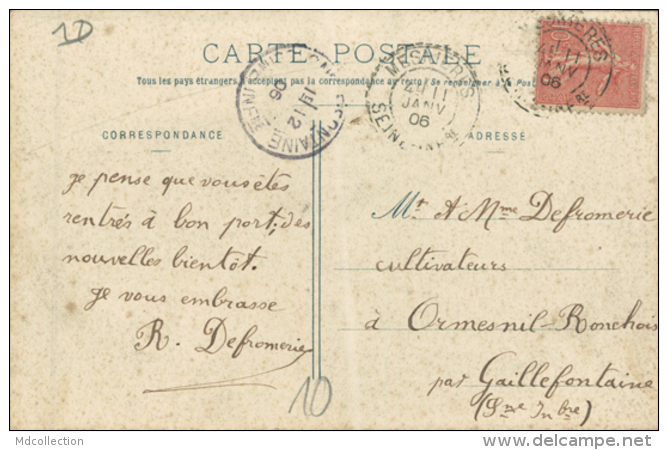 1D
CARTE POSTALE
Tous les pays étrangers n'acceptent pas la correspondance au recto (Se renseigner à la Poste)
CORRESPONDANCE
ADRESSE
MESNIÈRES
JANV
06
SEINE INFRE
12
06
Je pense que vous êtes
rentrés à bon port; des
nouvelles bientôt.
Je vous embrasse
R. Defromerie
Mr & Mme Defromerie
cultivateurs
à Ormesnil-Ronchois
par Gaillefontaine
(Sne Inbre)
10
Mdcollection
delcampe.net